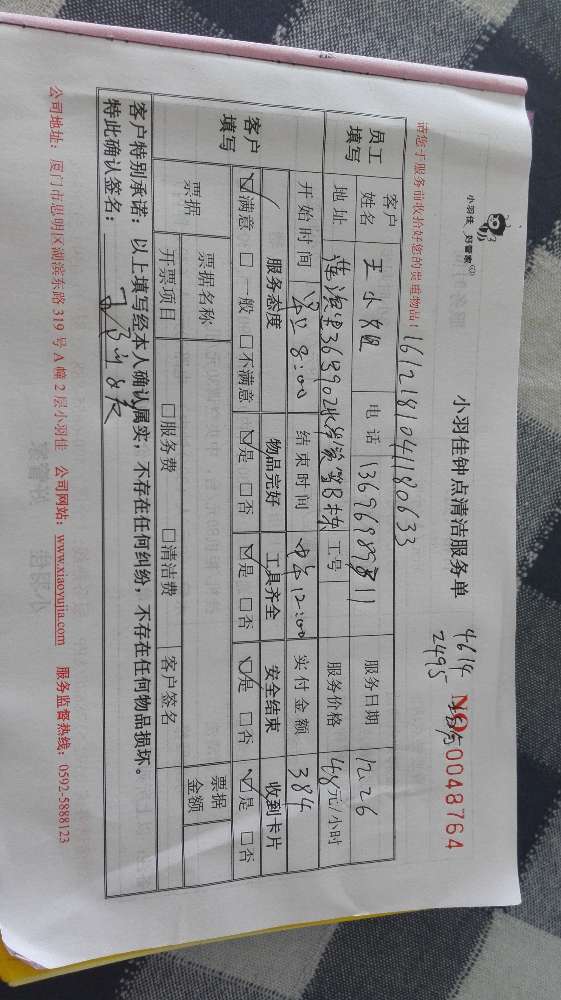 小羽佳 好管家
小羽佳钟点清洁服务单
4614
2495
NO 0048764
请您于服务前收拾好您的贵重物品！ 161218104180633
员工填写 客户姓名 王小姐 电话 服务日期 12.26
地址 工号 服务价格 48元/小时
开始时间 8:00 结束时间 12:00 实付金额 384
客户填写 服务态度 物品完好 工具齐全 安全结束 收到卡片
☑满意 □一般 □不满意 ☑是 □否 ☑是 □否 ☑是 □否 ☑是 □否
票据 票据名称 票据金额
开票项目 □服务费 □清洁费 客户签名
客户特别承诺：以上填写经本人确认属实，不存在任何纠纷，不存在任何物品损坏。
特此确认签名：
公司地址：厦门市思明区湖滨东路319号A幢2层小羽佳 公司网站：www.xiaoyujia.com 服务监督热线：0592-5888123